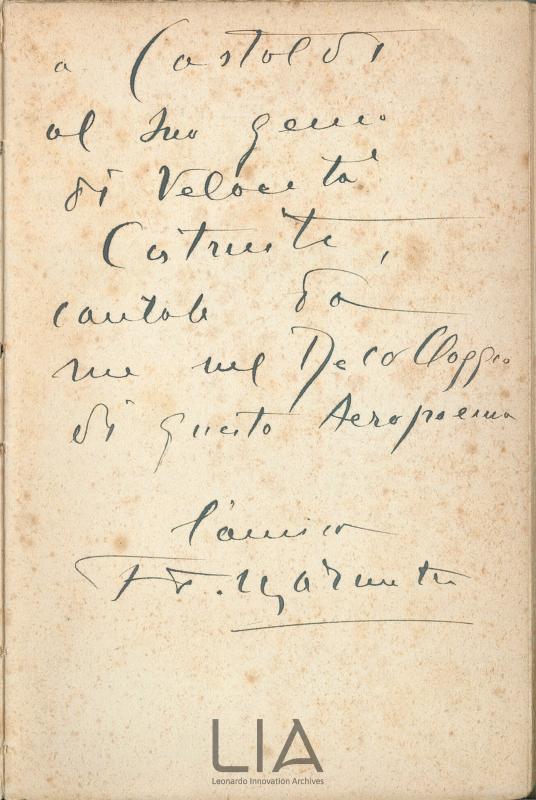 a Castoldi
al suo genio
di Velocità
Costruita,
cantate da
me nel Decollaggio
di questo Aeropoema
l'amico
F. T. Marinetti
LIA
Leonardo Innovation Archives